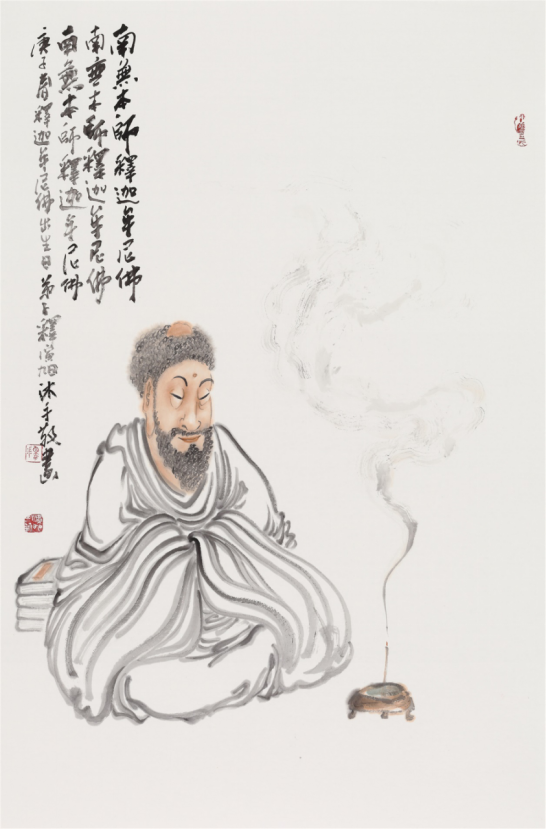 南無本師釋迦牟尼佛
南無本師釋迦牟尼佛
南無本師釋迦牟尼佛
庚子春釋迦牟尼佛出生日弟子釋廣旭沐手敬畫